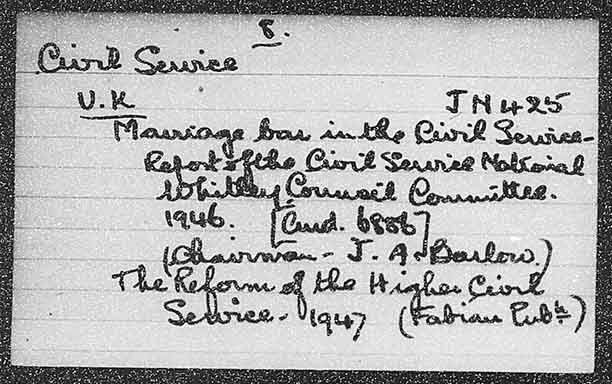 8.
Civil Service
U.K JN 425
Marriage bar in the Civil Service-
Report of the Civil Service National
Whitley Council Committee.
1946. [Cmd. 6886]
(Chairman - J. A. Barlow.)
The Reform of the Higher Civil
Service- 1947 (Fabian Pubn.)